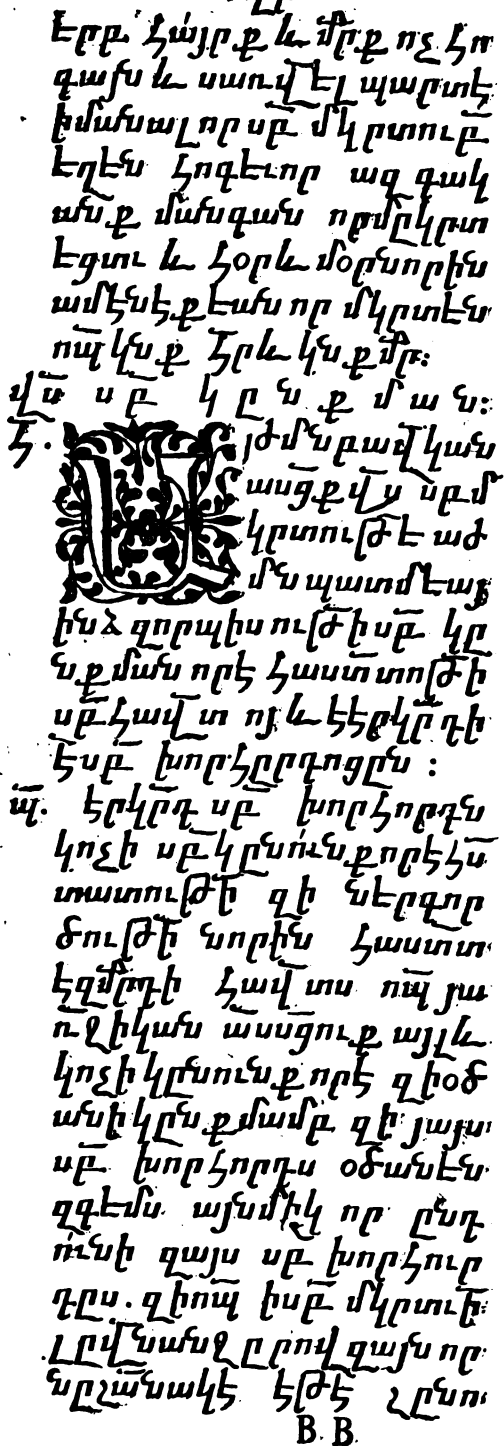 էրբ՝ Հայր ք և մ̃րք ոչ Հո
գայն և սառվ̃ել պարտէ
իմանալ որ սբ̃ մկրտուբ̃
եղեն Հոգեւոր ազգակ
անք մանգան որմըկրտ
եցու և Հօրև մօրնորին
ամէնէքեան որ մկրտեն
ոպ̃ կնք Հրև կնքմր̃։
վ̃ս սբ̃ կ ը ն ք մ ա ն։
Հ̃. Այժմ նրավկան
ասց̃ք վ̃ս սբմ
կրտութ̃ե աժ
մն պատմէայ
ինձ զորպիսութ̃ի սբ̃ կը
նքման որէ Հաստ̃տոթ̃ի
սբ̃ Հավ̃տ ոյ և էէրկր̃դի
է սբ̃ խորՀըրդոցըն ։
պ̃. էրկր̃դ սբ̃ խորՀորդն
կոչի սբ̃ կընունքորէՀս̃
տատութ̃ի զի ներգոր
ծութ̃ի նորին Հաստտ
էզմր̃դի Հավ̃տս ոպ̃ յա
ռ̃ջիկան ասսց̃ուք այլև
կոչի կընունքորէ զիօծ
անիկընքմամբ զի յայս
սբ̃ խորՀորդս օծանեն
զգէմս այնմիկ որ ընդ
ունի զայս սբ̃ խորՀուր
դըս. զիոպ̃ իսբ̃ մկրտուի̃
լըվ̃նանջըրով զայն որ
նըշանակէ էթէ չընո
B. B.